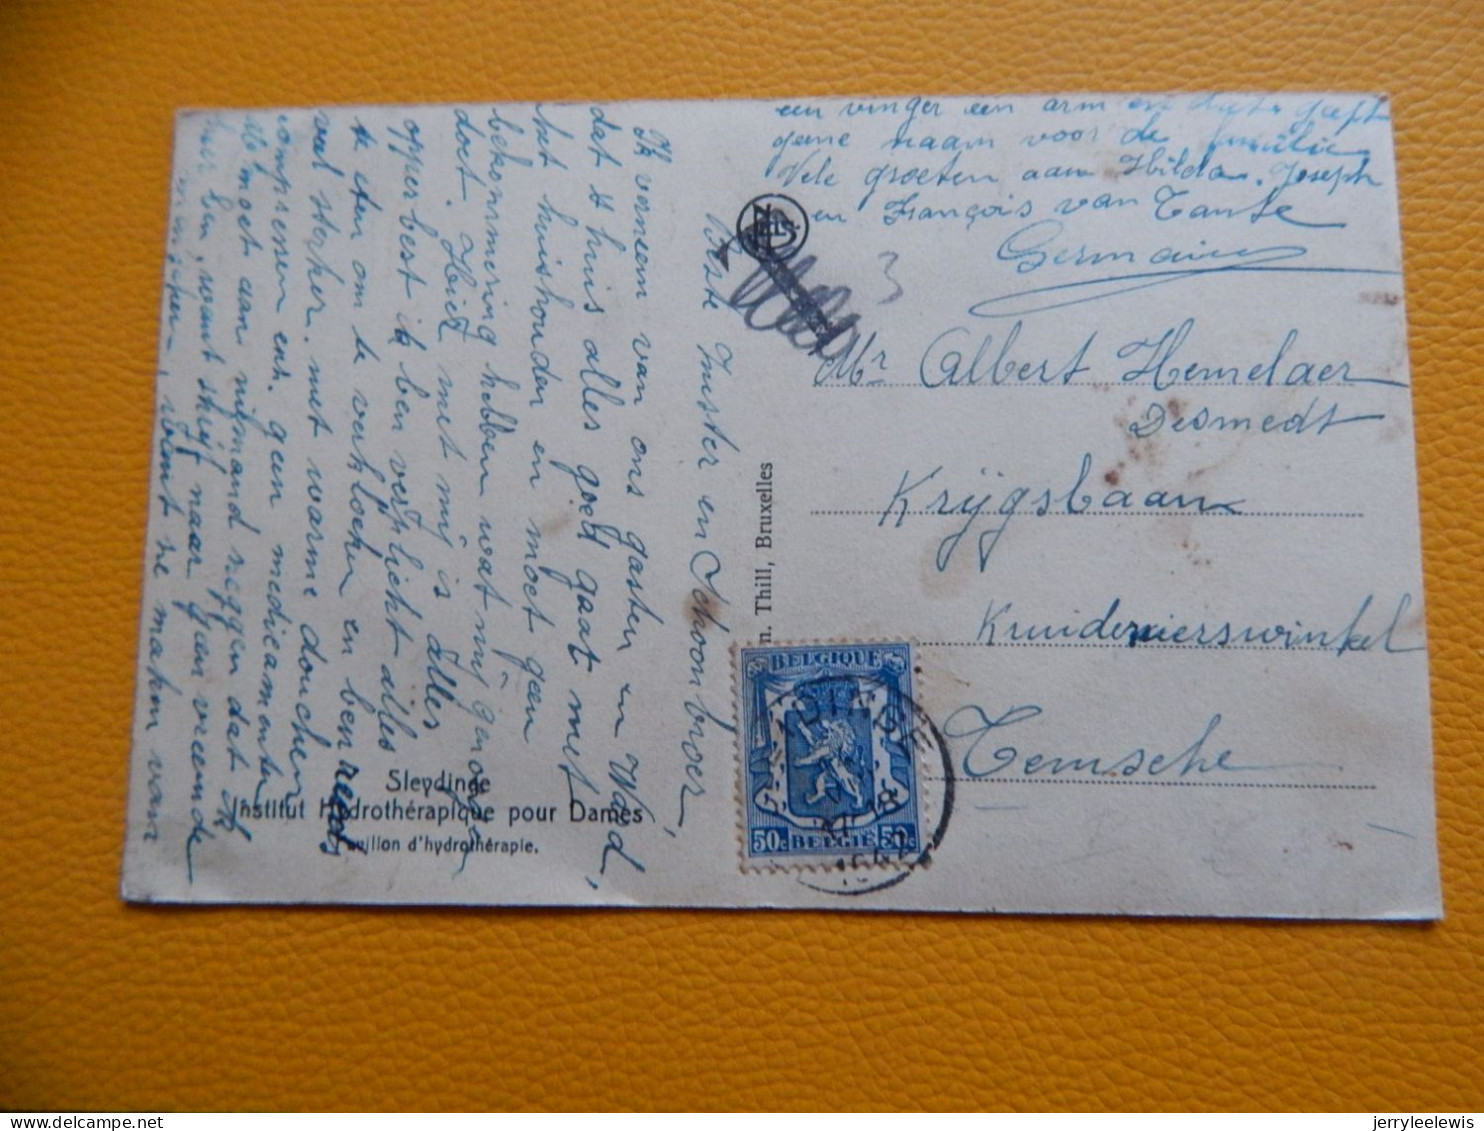 Beste Zuster en Schoonbroer,
Ik verneem van ons gasten in Waard,
dat t'huis alles goed gaat met
het huishouden en moet geen
bekommering hebben wat mij
doet. Hier met mij is alles
opperbest ik ben verplicht alles
te doen om te verkloeken en ben reeds
veel sterker. met warme douchen
compressen enz. geen medicamenten
Ge moet aan niemand zeggen dat ik
hier ben, want schrijf naar geen vreemde
want ze maken van
een vinger een arm en geeft
geene naam voor de familie
Vele groeten aan Hilda. Joseph
en François van Tante
Germaine
3
Mr Albert Hemelaer
Desmedt
Krijgsbaan
Kruidenierswinkel
Temsche
Nels
Thill, Bruxelles
BELGIQUE
50c BELGIË 50c
18
1942
Sleydinge
Institut Hydrothérapique pour Dames
Pavillon d'hydrothérapie.
jerryleelewis